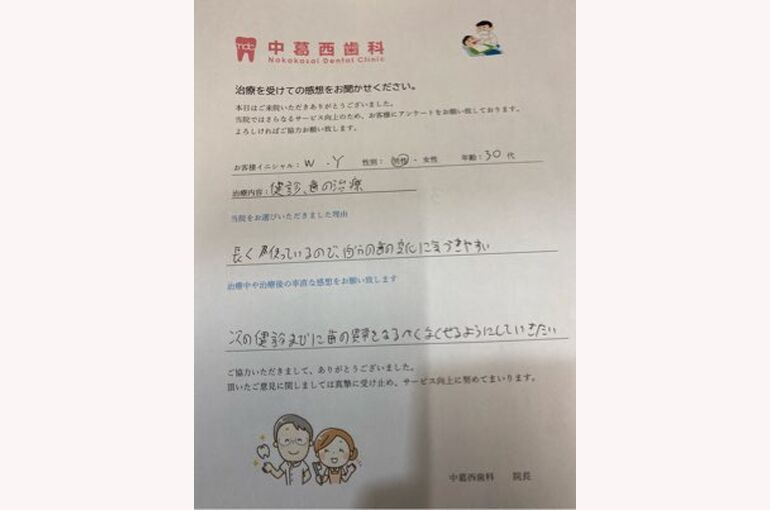 ndc
中葛西歯科
Nakakasai Dental Clinic
治療を受けての感想をお聞かせください。
本日はご来院いただきありがとうございました。
当院ではさらなるサービス向上のため、お客様にアンケートをお願い致しております。
よろしければご協力お願い致します。
お客様イニシャル：W ・Y 性別：男性・女性 年齢：30代
治療内容：健診、歯の治療
当院をお選びいただきました理由
長く 使っているので、自分の歯の変化に気づきやすい
治療中や治療後の率直な感想をお願い致します
次の健診までに歯の異常をなるべくなくせるようにしていきたい
ご協力いただきまして、ありがとうございました。
頂いたご意見に関しましては真摯に受け止め、サービス向上に努めてまいります。
中葛西歯科 院長